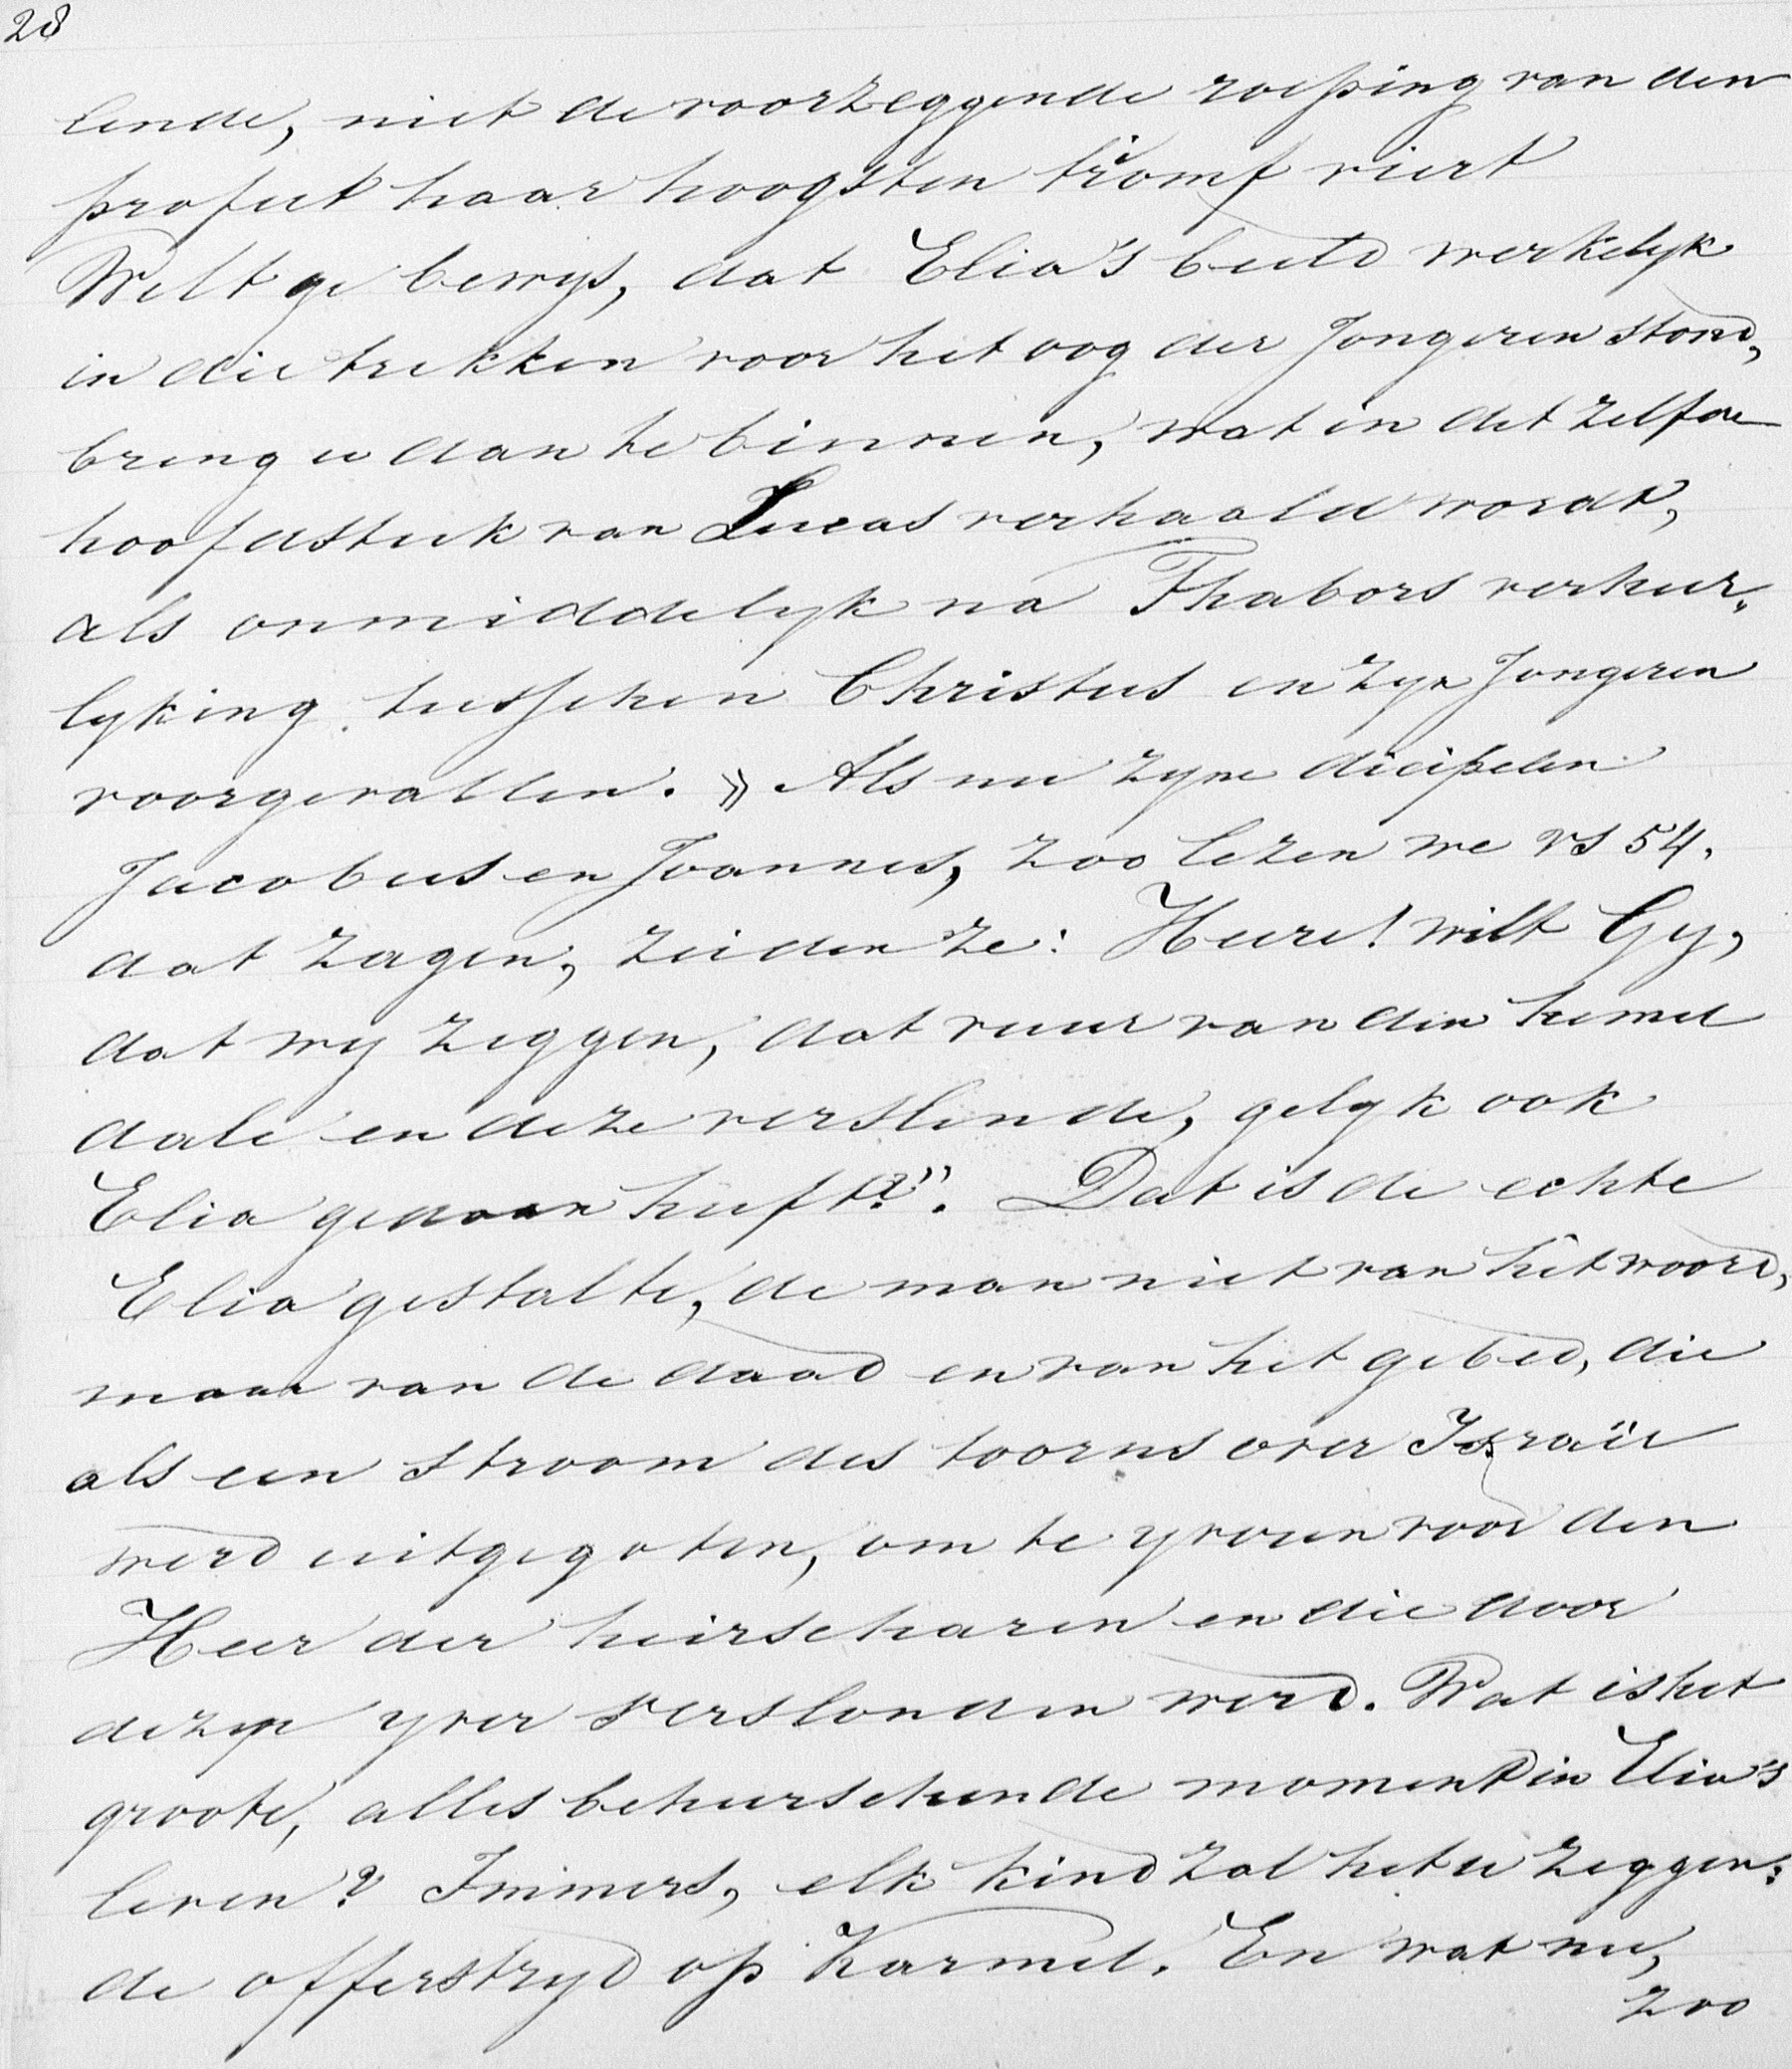 28
lende, niet de voorzeggende roeping van den
profeet haar hoogsten triomf viert
Wilt ge bewys, dat Elia's beeld werkelyk
in die trekken voor het oog der Jongeren stond,
breng u dan te binnen, wat in dit zelfde
hoofdstuk van Lucas verhaald wordt,
als onmiddelyk na Thabors verheer„
lyking tusschen Christus en zyn Jongeren
voorgevallen. » Als nu zyne dicipelen
Jacobus en Joannes, zoo lezen we vs 54.
dat zagen, zeiden ze: Heere! wilt Gy,
dat wy zeggen, dat vuur van den hemel
dale en deze verslinde, gelyk ook
Elia gedaan heeft?". Dat is de echte
Elia gestalte, de man niet van het woord,
maar van de daad en van het gebed, die
als een stroom des toorns over Israël
werd uitgegoten, om te yveren voor den
Heer der heirscharen en die door
dezen yver verslonden werd. Wat is het
groote, alles beheerschende moment in Elia's
leven? Immers, elk kind zal het u zeggen:
de offerstryd op Karmel. En wat nu,
zoo